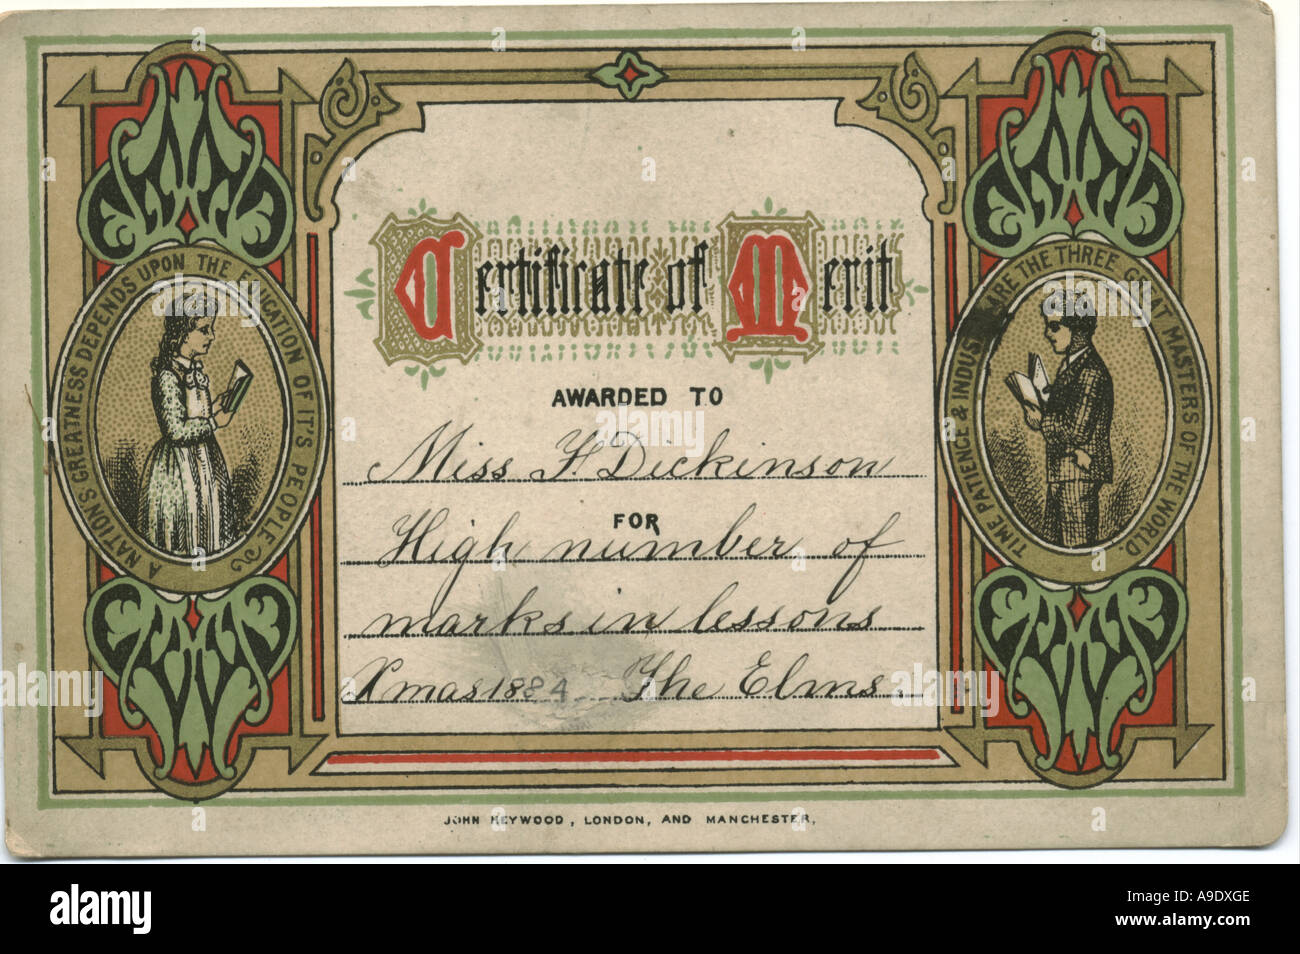 Certificate of Merit
AWARDED TO
Miss F. Dickinson
FOR
High number of
marks in lessons
Xmas 1884 The Elms.
A NATION'S GREATNESS DEPENDS UPON THE EDUCATION OF IT'S PEOPLE
TIME PATIENCE & INDUSTRY ARE THE THREE GREAT MASTERS OF THE WORLD
JOHN HEYWOOD, LONDON, AND MANCHESTER.
a alamy
alamy
Image ID: A9DXGE
www.alamy.com